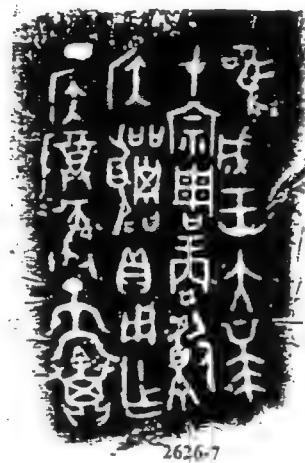 唯成王大𠦪
才宗周商獻
侯貝用乍
丁侯尊彝天黿
2626-7